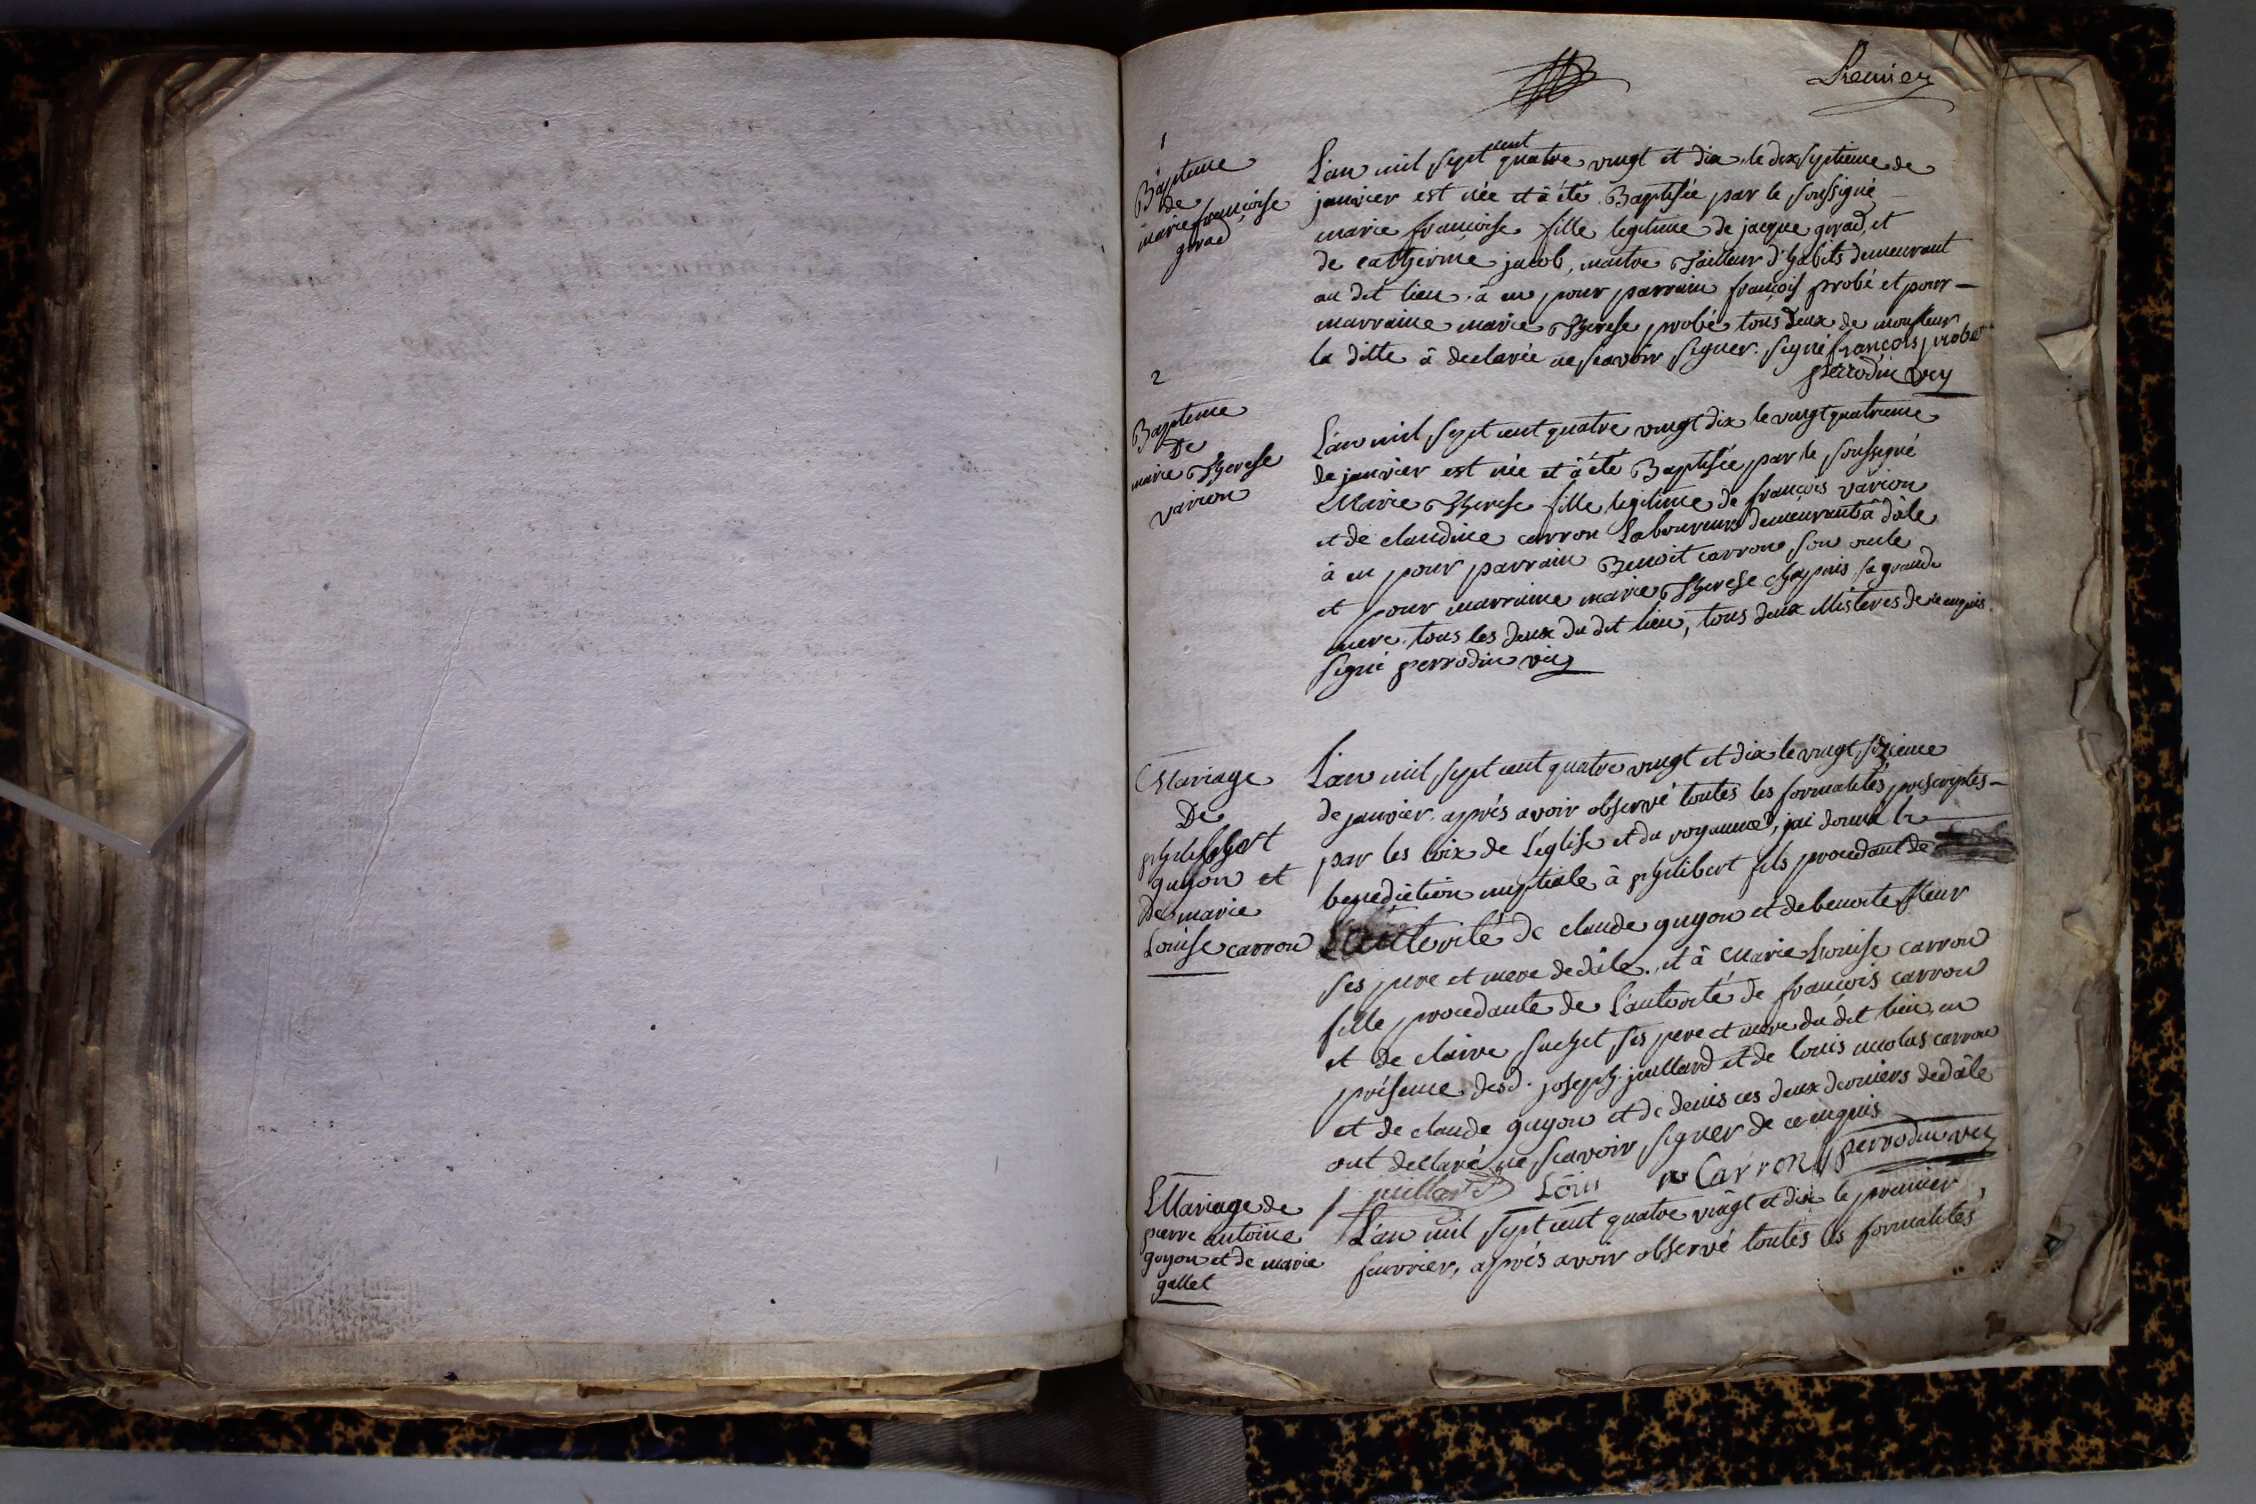 Premier
1
Bâpteme
de
marie francoise
girad
L'an mil sept cent quatre vingt et dix le dixseptieme de
janvier est née et à été Baptisée par le soussigné
marie francoise fille legitime de jacque girad, et
de catherine jacob, maitre Tailleur d'habits demeurant
au dit lieu. à eu pour parrain françois probé et pour
marraine marie Therese probé tous deux de
la ditte à declarée ne scavoir signer. signé françois probet
perrodin vic
2
Bapteme
De
marie Therese
varion
L'an mil sept cent quatre vingt dix le vingt quatrieme
de janvier est née et à été Baptisée par le soussigné
Marie Therese fille legitime de françois varion
et de claudine carron Laboureurs demeurant à dâle
à eu pour parrain Benoit carron son oncle
et pour marraine marie Therese chapuis sa grande
mere. tous les deux du dit lieu, tous deux illiteres de ce enquis.
signé perrodin vic
Mariage
De
philibert
guyon et
De marie
Louise carron
L'an mil sept cent quatre vingt et dix le vingt sixieme
de janvier. après avoir observé toutes les formalités prescriptes
par les loix de L'église et du royaume, jai donné la
benediction nuptiale à philibert fils procedant de
L'autorité de claude guyon et de benoite fleur
ses pere et mere de dâle. et à Marie Louise carron
fille procedante de L'autorité de françois carron
et de claire suchet ses pere et mere du dit lieu, en
présence des d. joseph juillard et de louis nicolas carron
et de claude guyon et de denis ces deux derniers de dâle
ont declaré ne scavoir signer de ce enquis
j juillard Loüis n Carron perrodin vic
Mariage de
pierre antoine
guyon et de marie
gallet
L'an mil sept cent quatre vingt et dix le premier
feuvrier, après avoir observé toutes les formalités